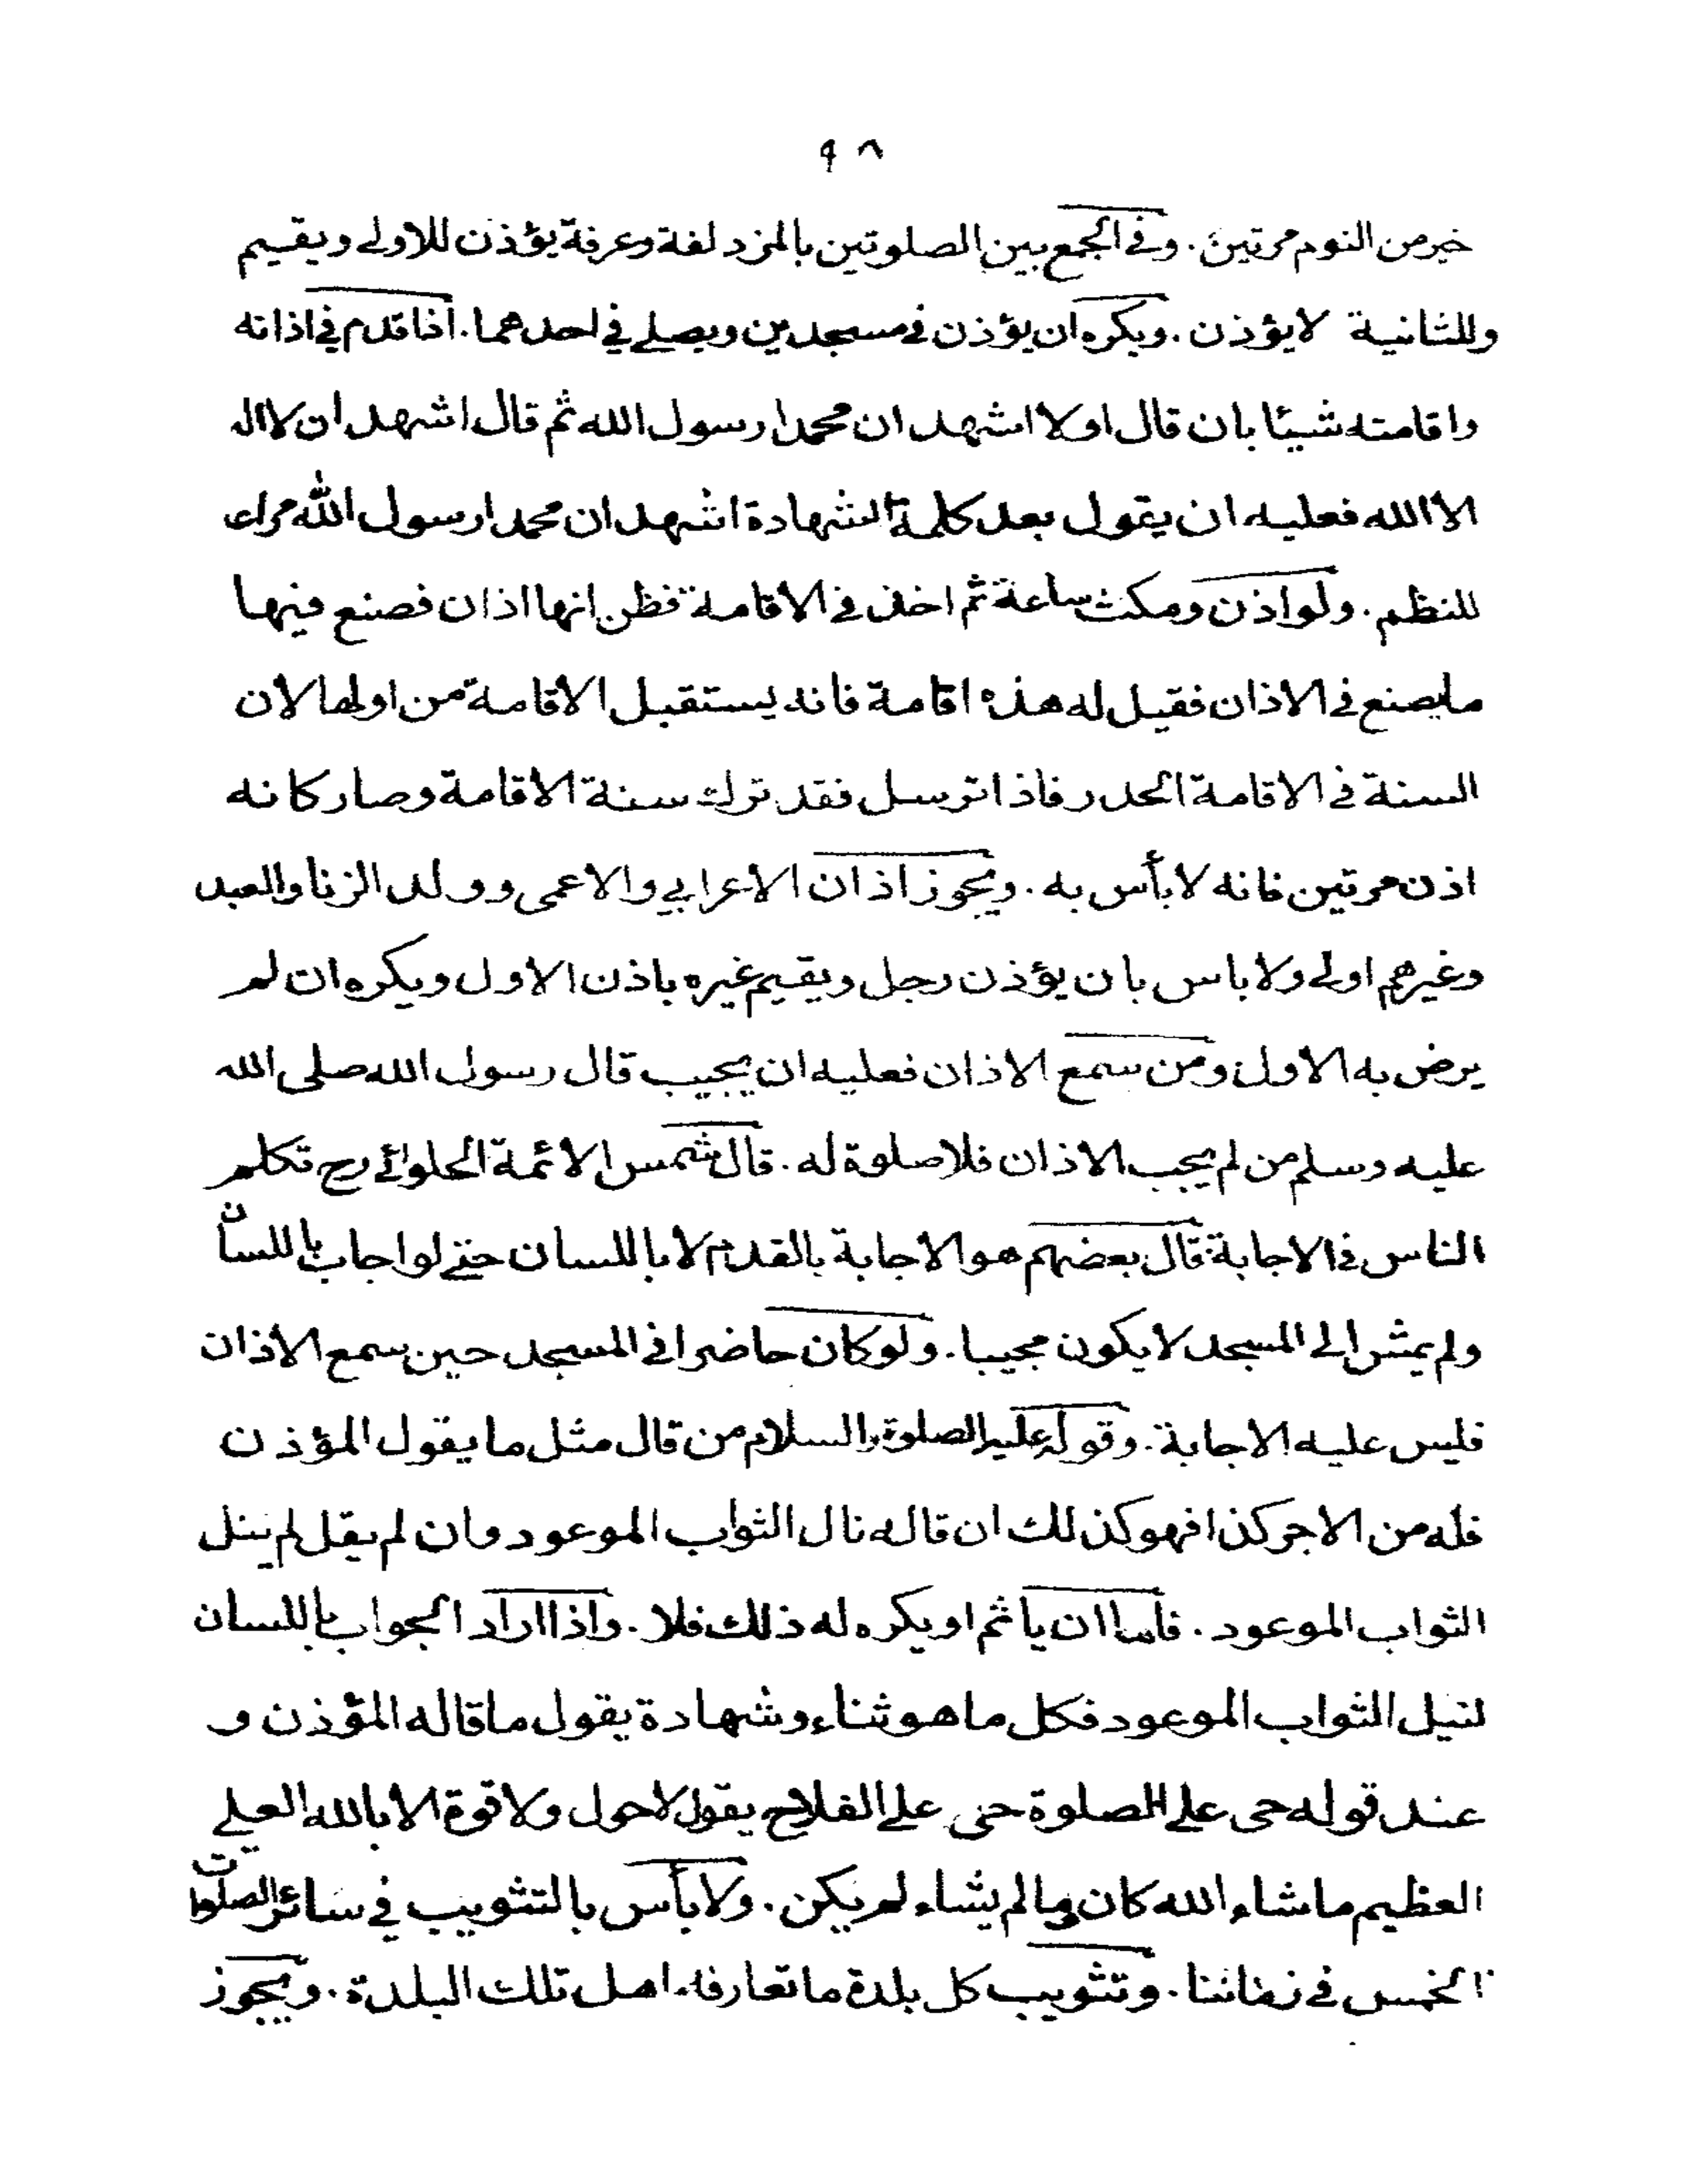 ٩٨
خير من النوم مرتين. وفي الجمع بين الصلوتين بالمزدلفة وعرفة يؤذن للاولى ويقيم
وللثانية لا يؤذن. ويكره ان يؤذن في مسجدين ويصلي في احدهما. اذا قدم في اذانه
واقامته شيئا بان قال اولا اشهد ان محمدا رسول الله ثم قال اشهد ان لا اله
الا الله فعليه ان يقول بعد كلمة الشهادة اشهد ان محمدا رسول الله
للنظم. ولو اذن ومكث ساعة ثم اخذ في الاقامة فظن انها اذان فصنع فيها
ما يصنع في الاذان فقيل له هذه اقامة فانه يستقبل الاقامة من اولها لان
السنة في الاقامة الحدر فاذا ترسل فقد ترك سنة الاقامة وصار كانه
اذن مرتين فانه لا بأس به. ويجوز اذان الاعرابي والاعمى وولد الزنا والعبد
وغيرهم اولى ولا باس بان يؤذن رجل ويقيم غيره باذن الاول ويكره ان لم
يرض به الاول ومن سمع الاذان فعليه ان يجيب قال رسول الله صلى الله
عليه وسلم من لم يجب الاذان فلا صلوة له. قال شمس الائمة الحلوائي رح تكلم
الناس في الاجابة قال بعضهم هو الاجابة بالقدم لا باللسان حتى لو اجاب باللسان
ولم يمش الى المسجد لا يكون مجيبا. ولو كان حاضرا في المسجد حين سمع الاذان
فليس عليه الاجابة. وقوله عليه الصلوة والسلام من قال مثل ما يقول المؤذن
فله من الاجر كذا فهو كذلك ان قاله نال الثواب الموعود وان لم يقل لم ينل
الثواب الموعود. فاما ان ياثم او يكره له ذلك فلا. واذا اراد الجواب باللسان
لنيل الثواب الموعود فكل ما هو ثناء وشهادة يقول ما قاله المؤذن و
عند قوله حي على الصلوة حي على الفلاح يقول لا حول ولا قوة الا بالله العلي
العظيم ما شاء الله كان وما لم يشاء لم يكن. ولا بأس بالتثويب في سائر الصلوات
الخمس في زماننا. وتثويب كل بلدة ما تعارفه اهل تلك البلدة. ويجوز